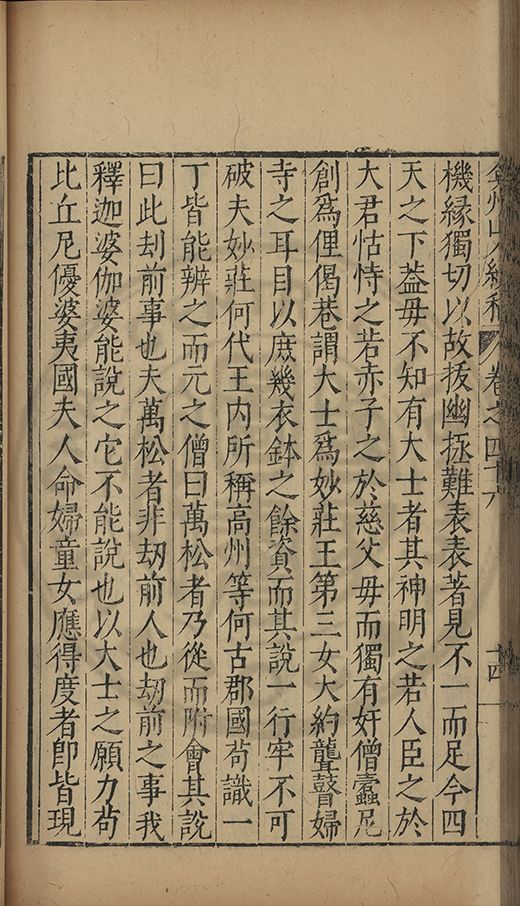 弇州山人續稿 卷之四十六 十四
機緣獨切以故拔幽拯難表表著見不一而足今四
天之下葢毋不知有大士者其神明之若人臣之於
大君怙恃之若赤子之於慈父毋而獨有奸僧蠹尼
創爲俚偈巷謂大士爲妙莊王第三女大約聾瞽婦
寺之耳目以庶幾衣鉢之餘資而其說一行牢不可
破夫妙莊何代王内所稱高州等何古郡國茍識一
丁皆能辨之而元之僧曰萬松者乃從而附會其說
曰此刦前事也夫萬松者非刼前人也刼前之事我
釋迦婆伽婆能說之它不能說也以大士之願力茍
比丘尼優婆夷國夫人命婦童女應得度者卽皆現